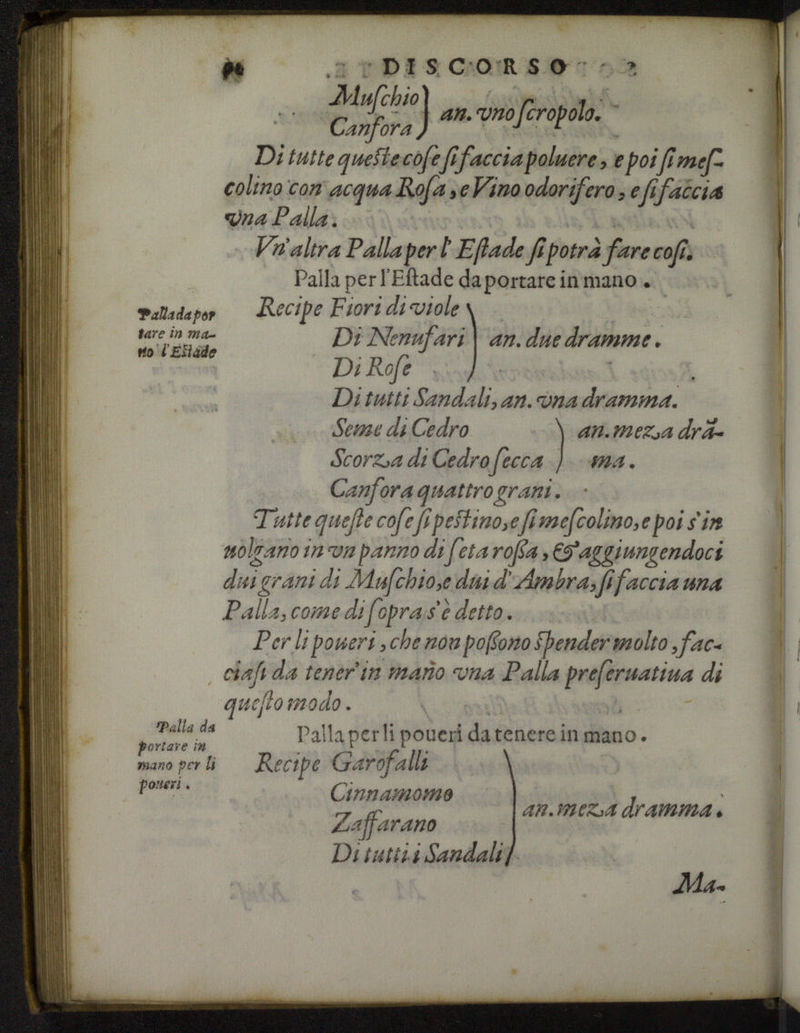 DISCORSO
Muſchio
Canfora } an. vno ſcropolo.
Di tutte queſte coſe ſi faccia poluere, e poi ſi meſ-
colino con acqua Roſa, e Vino odorifero, e ſi faccia
vna Palla.
Vn'altra Palla per l'Eſtade ſi potrà fare coſi.
Palla per l'Eſtade da portare in mano.
Palla da por
tare in ma-
no l'Eſtade
Recipe Fiori di viole
Di Nenufari } an. due dramme.
Di Roſe
Di tutti Sandali, an. vna dramma.
Seme di Cedro } an. meza drā-
Scorza di Cedro ſecca } ma.
Canfora quattro grani.
Tutte queſte coſe ſi peſtino, e ſi meſcolino, e poi s'in
uolgano in vn panno di ſeta roſſa, & aggiungendoci
dui grani di Muſchio, e dui d'Ambra, ſi faccia una
Palla, come di ſopra s'è detto.
Per li poueri, che non poſſono ſpender molto, fac-
ciaſi da tener'in mano vna Palla preſeruatiua di
queſto modo.
Palla da
portare in
mano per li
poueri.
Palla per li poueri da tenere in mano.
Recipe Garofalli
Cinnamomo
Zaffarano } an. meza dramma.
Di tutti i Sandali
Ma-